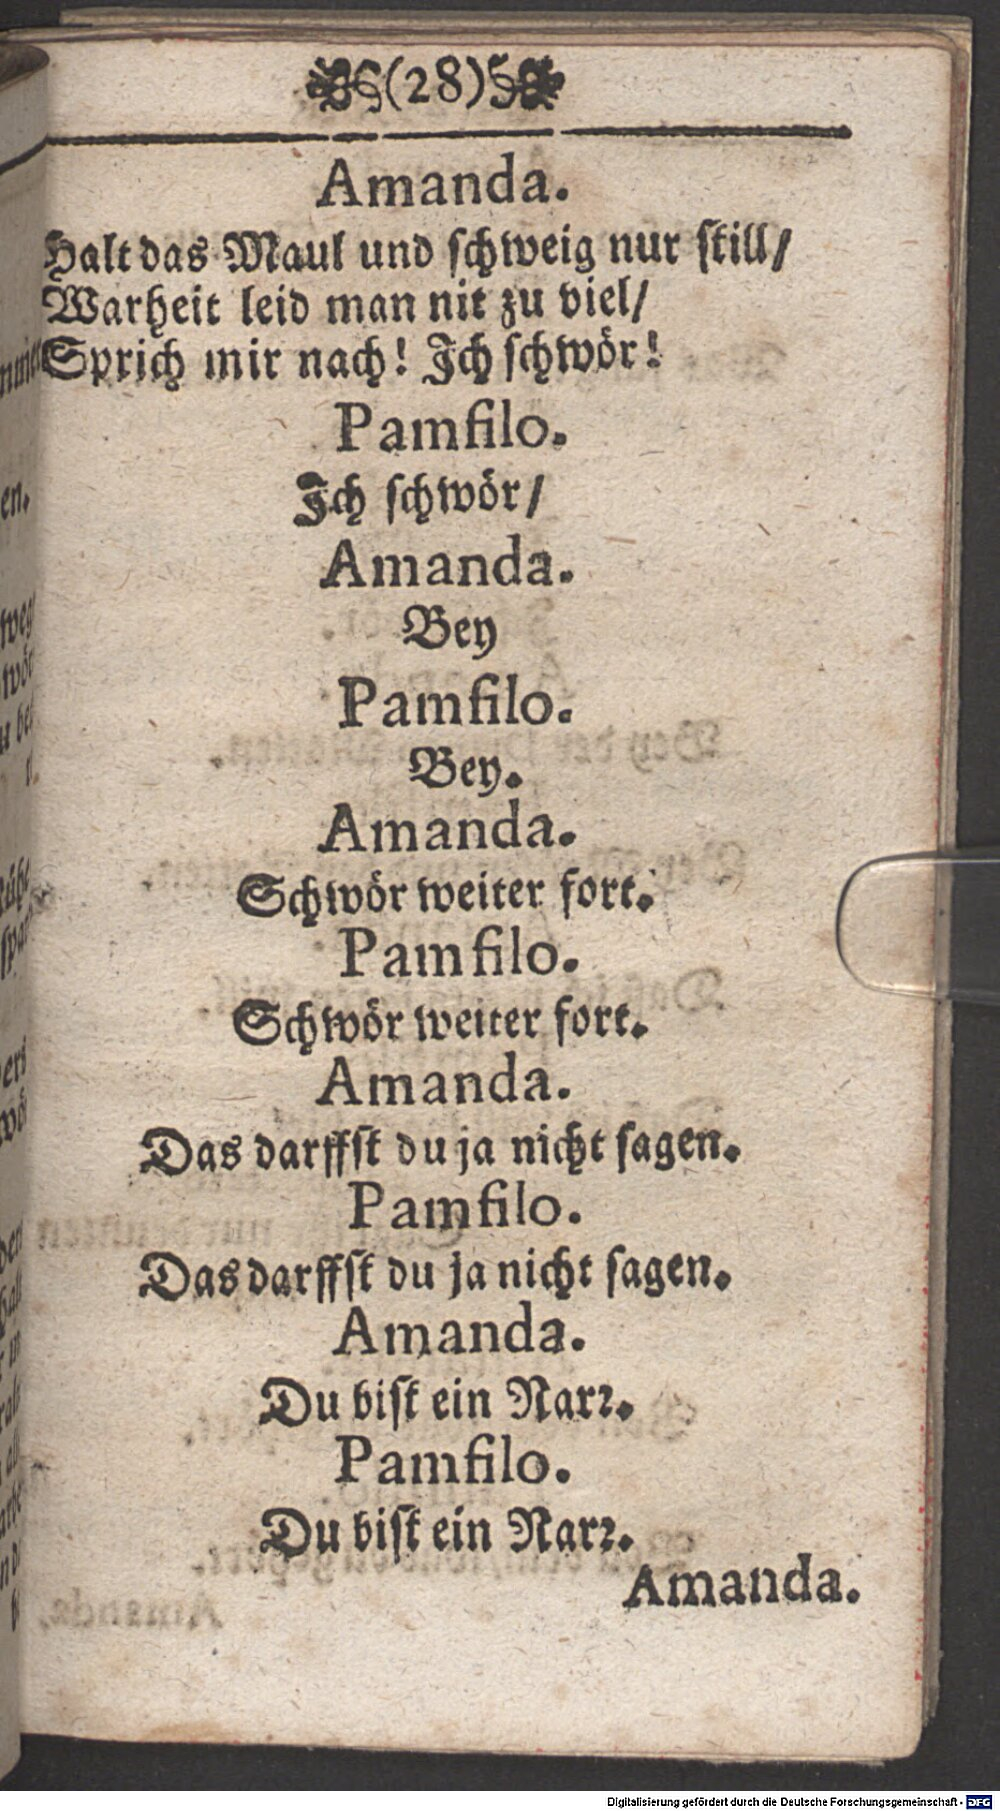 (28)
Amanda.
Halt das Maul und ſchweig nur ſtill/
Warheit leid man nit zu viel/
Sprich mir nach! Ich ſchwör!
Pamfilo.
Ich ſchwör/
Amanda.
Bey
Pamfilo.
Bey.
Amanda.
Schwör weiter fort.
Pamfilo.
Schwör weiter fort.
Amanda.
Das darffſt du ja nicht ſagen.
Pamfilo.
Das darffſt du ja nicht ſagen.
Amanda.
Du biſt ein Narꝛ.
Pamfilo.
Du biſt ein Narꝛ.
Amanda.
Digitalisierung gefördert durch die Deutsche Forschungsgemeinschaft - DFG